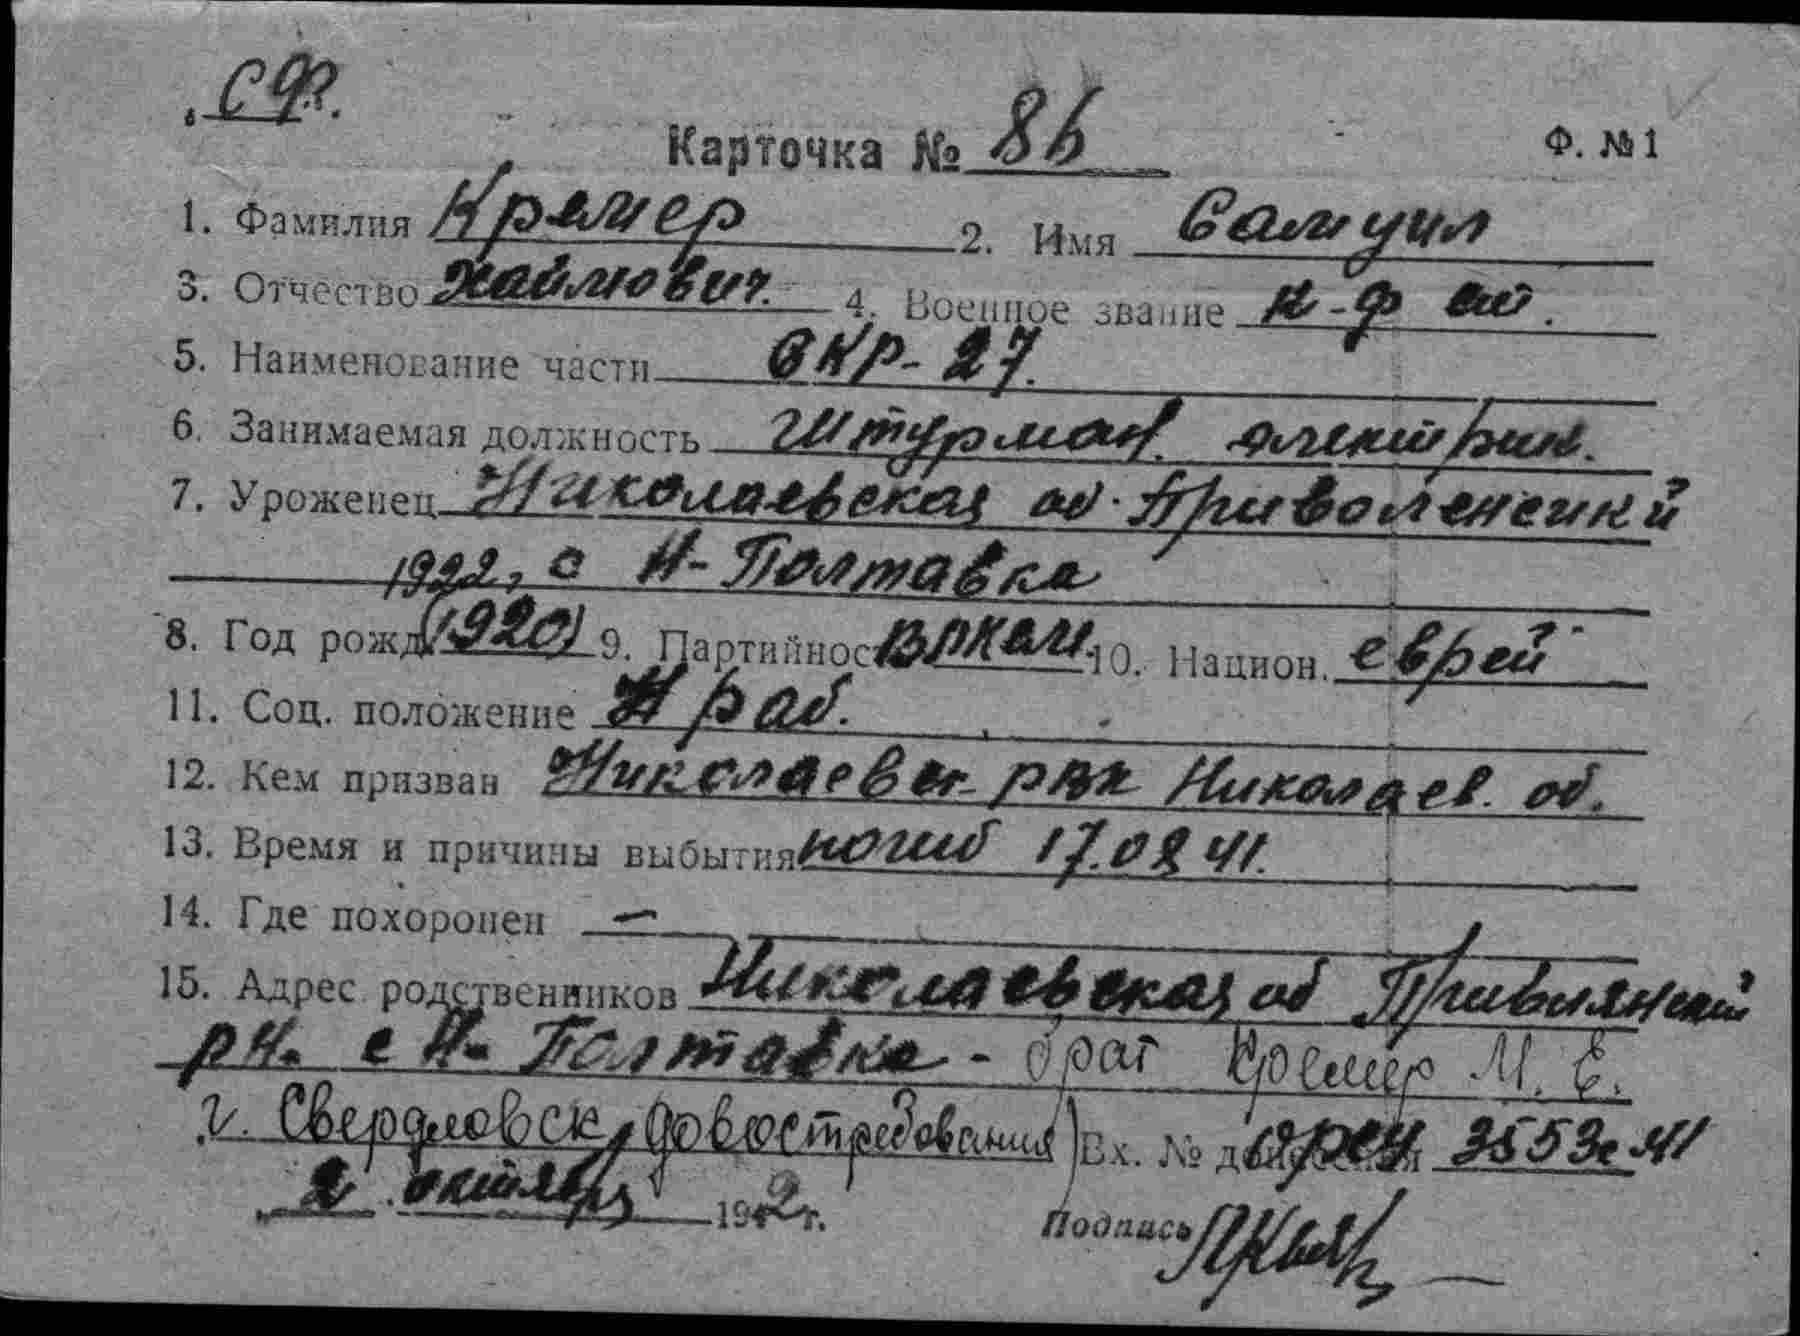 СФ.
Карточка № 86 Ф. №1
1. Фамилия Кремер 2. Имя Самуил
3. Отчество Хаймович. 4. Военное звание к-ф
5. Наименование части СКР-27.
6. Занимаемая должность Штурман. электрик.
7. Уроженец Николаевская об. Приволенский
1922, с Н-Полтавка
8. Год рожд (1920) 9. Партийнос ВЛКСМ 10. Национ. еврей
11. Соц. положение раб.
12. Кем призван Николаевск рвк Николаев. об.
13. Время и причины выбытия погиб 17.08 41.
14. Где похоронен —
15. Адрес родственников Николаевская об Приволянский
рн. с Н-Полтавка - брат Кремер М. Е.
г. Свердловск, довостребования) Вх. № 3553с 41
2 октября 1942 г.
Подпись